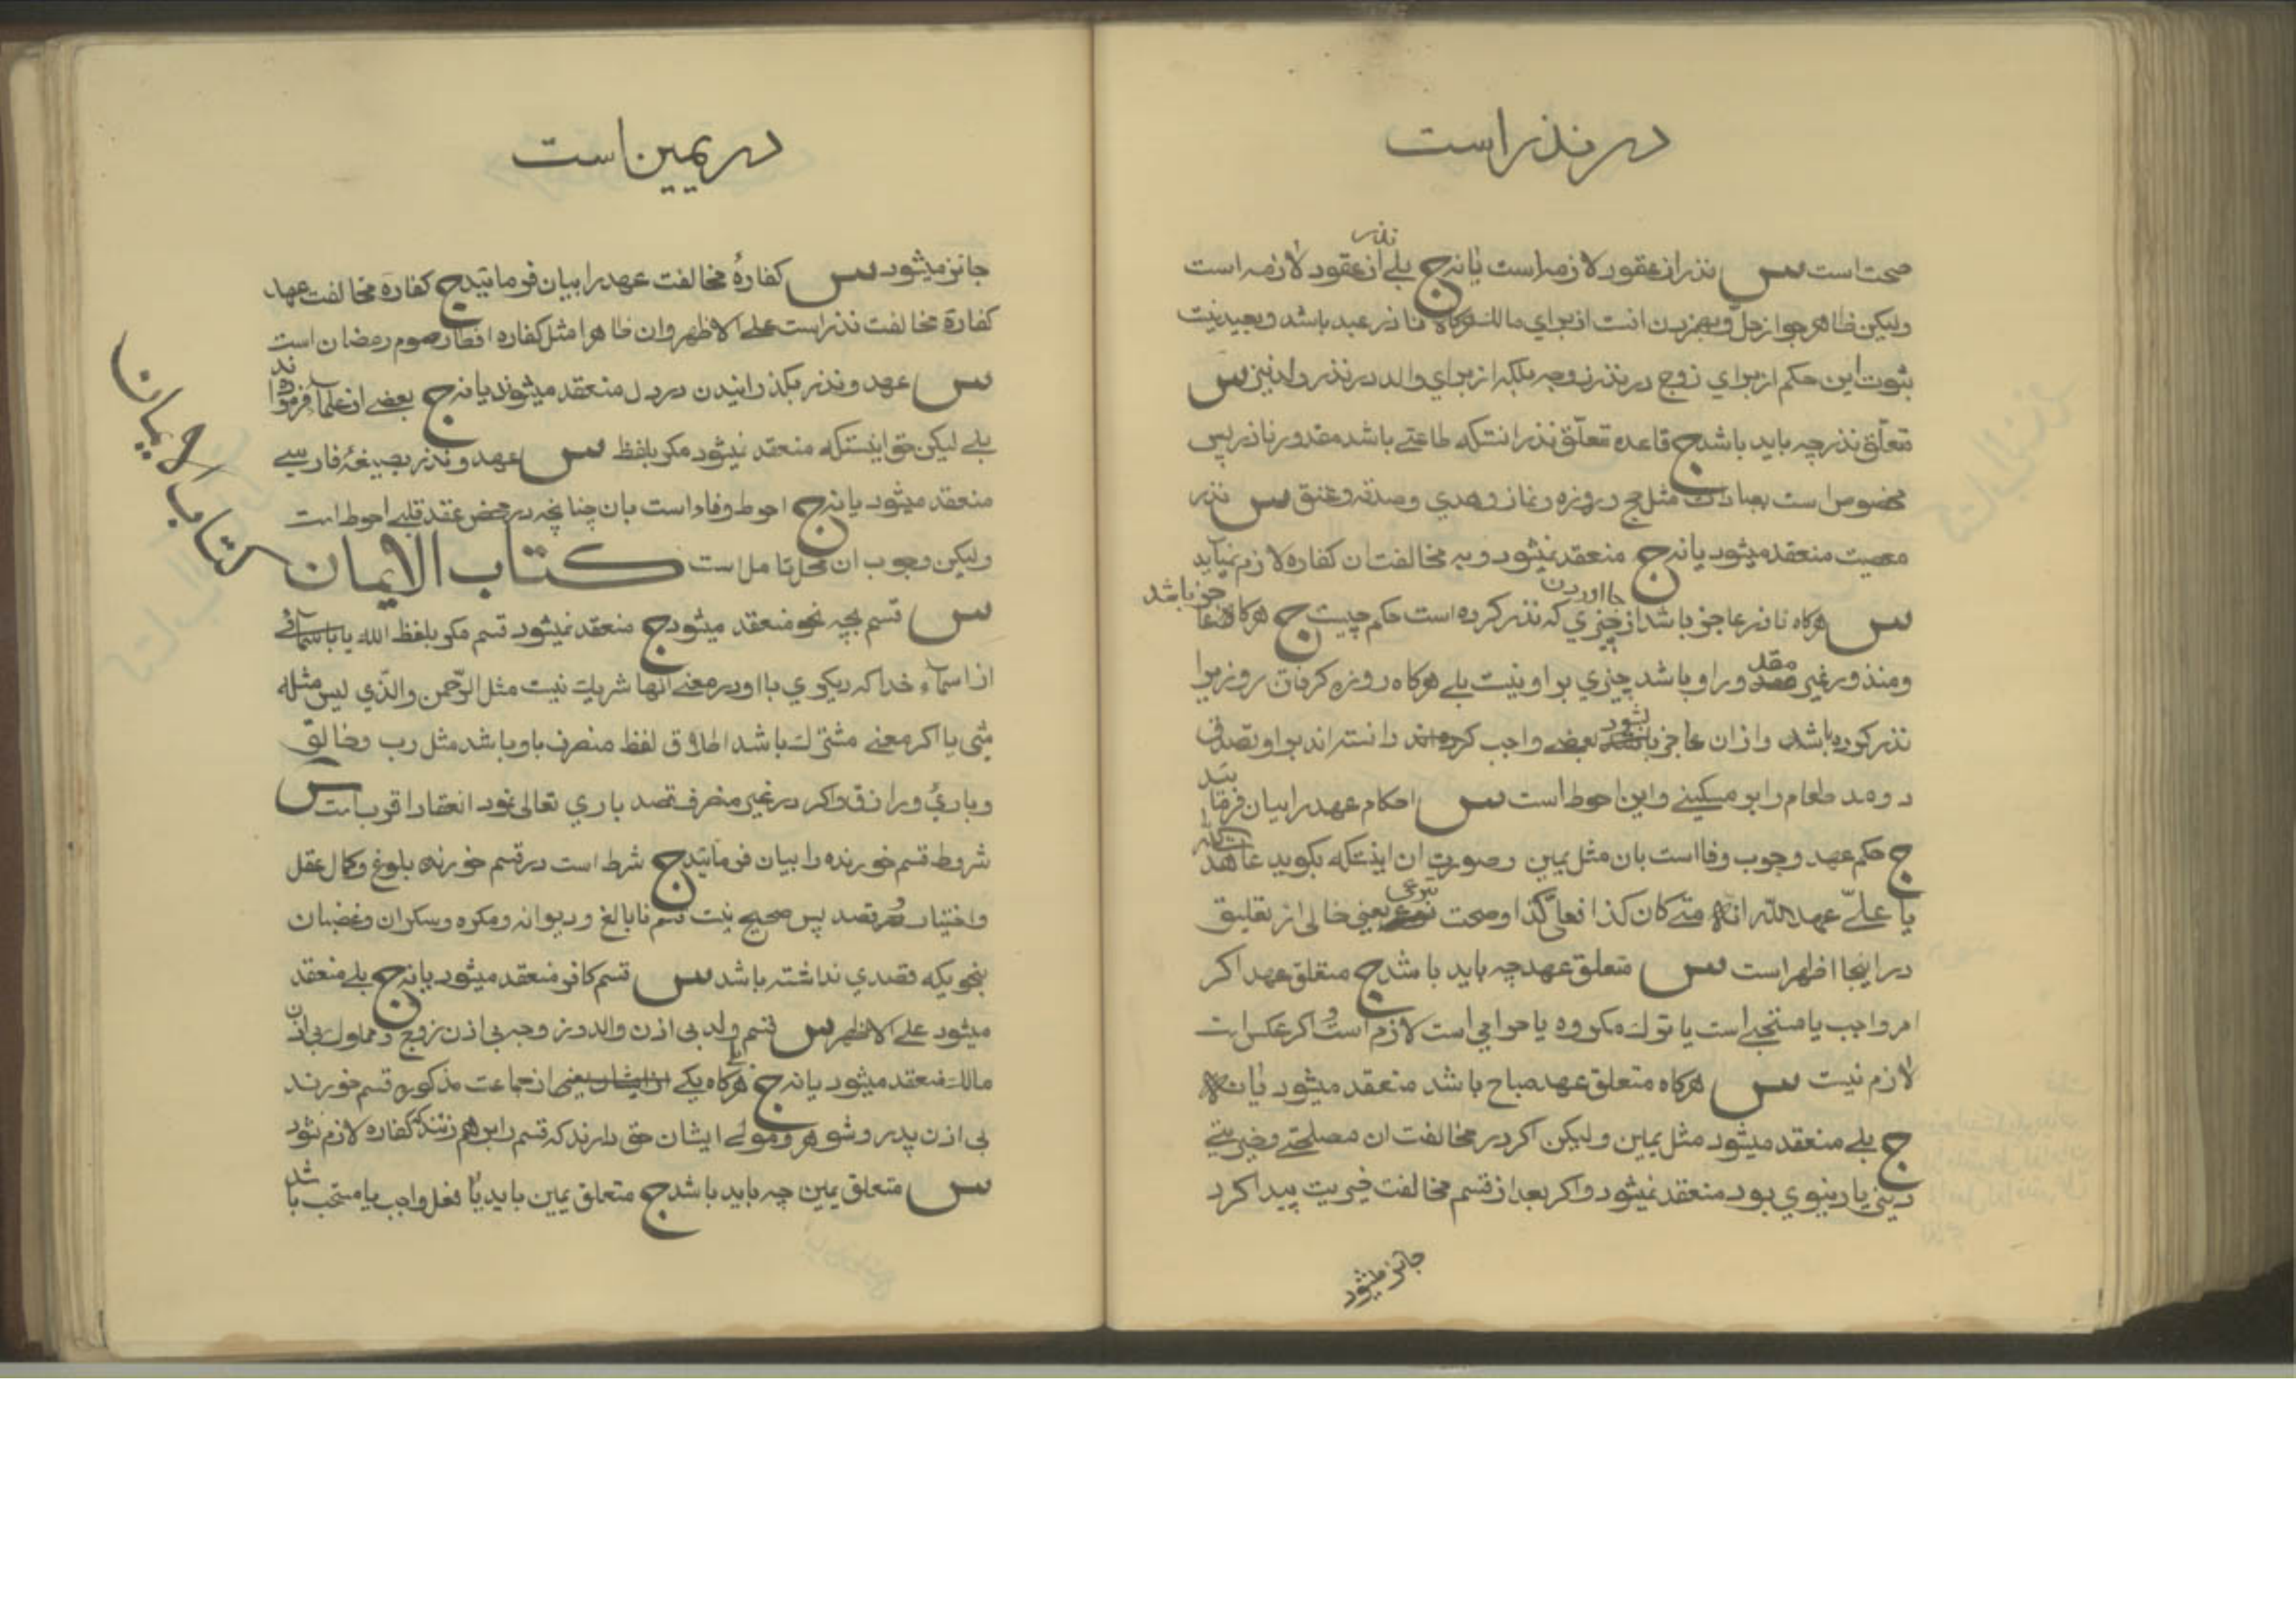 در نذر است
صحت است س نذر از عقود لازمه است یا نه ج بلی نذر از عقود لازمه است
ولیکن ظاهر جواز حل و بهم زدن انست از برای مالک هرکاه ناذر عبد باشد و بعید نیست
ثبوت این حکم از برای زوج در نذر زوجه بلکه از برای والد در نذر ولد نیز س
تعلّق نذر چه باید باشد ج قاعده تعلّق نذر انستکه طاعتی باشد مقدور ناذر پس
مخصوص است بعبادت مثل حج و روزه و نماز و هدی و صدقه و عتق س نذر
معصیت منعقد میشود یا نه ج منعقد نمیشود و به مخالفت ان کفاره لازم نمیآید
س هرکاه ناذر عاجز باشد از جا اوردن چیزی که نذر کرده است حکم چیست ج هرکاه عاجز باشد
و منذور غیر مقدور او باشد چیزی بر او نیست بلی هرکاه روزه کرفتن روزیرا
نذر کرده باشد و از ان عاجز بشود بعضی واجب دانسته اند بر او تصدق
دو مد طعام را بر مسکینی و این احوط است س احکام عهد را بیان فرمائید
ج حکم عهد وجوب وفا است بان مثل یمین و صورت ان اینستکه بکوید عاهدت الله
یا علیّ عهد الله انه متی کان کذا فعلیّ کذا و صحت تبرعی یعنی خالی از تعلیق
در اینجا اظهر است س متعلق عهد چه باید باشد ج متعلق عهد اکر
امر واجب یا مستحبی است یا ترک مکروه یا حرامی است لازم است و اکر عکس است
لازم نیست س هرکاه متعلق عهد مباح باشد منعقد میشود یا نه
ج بلی منعقد میشود مثل یمین ولیکن اکر در مخالفت ان مصلحتی و خیریتی
دینی یا دنیوی بود منعقد نمیشود و اکر بعد از قسم مخالفت خیریت پیدا کرد
جائز میشود
در یمین است
جائز میشود س کفارهٔ مخالفت عهد را بیان فرمائید ج کفارهٔ مخالفت عهد
کفارهٔ مخالفت نذر است علی الاظهر وان ظاهرا مثل کفاره افطار صوم رمضان است
س عهد و نذر بکذرانیدن در دل منعقد میشوند یا نه ج بعضی از علماء فرموده اند
بلی لیکن حق اینستکه منعقد نمیشود مکر بلفظ س عهد و نذر بصیغهٔ فارسی
منعقد میشود یا نه ج احوط وفاء است بان چنانچه در محض عقد قلبی احوط است
ولیکن وجوب ان محل تامل است کتاب الایمان
کتاب الایمان
س قسم بچه نحو منعقد میشود ج منعقد نمیشود قسم مکر بلفظ الله یا باسمائی
از اسماء خدا که دیکری با او در معنی انها شریک نیست مثل الرّحمن والّذی لیس کمثله
شی یا اکر معنی مشترک باشد اطلاق لفظ منصرف باو باشد مثل رب و خالق
و باریٔ و رازق و اکر در غیر منصرف قصد باری تعالی نمود انعقاد اقرب است س
شروط قسم خورنده را بیان فرمائید ج شرط است در قسم خورنده بلوغ و کمال عقل
و اختیار و قصد پس صحیح نیست قسم نابالغ و دیوانه و مکره و سکران و غضبان
بنحویکه قصدی نداشته باشد س قسم کافر منعقد میشود یا نه ج بلی منعقد
میشود علی الاظهر س قسم ولد بی اذن والد و زوجه بی اذن زوج و مملوک بی اذن
مالک منعقد میشود یا نه ج هرکاه یکی از جماعت مذکوره قسم خورند
بی اذن پدر و شوهر و مولی ایشان حق دارند که قسم را برهم زنند که کفاره لازم نشود
س متعلق یمین چه باید باشد ج متعلق یمین باید یا فعل واجب یا مستحب باشد